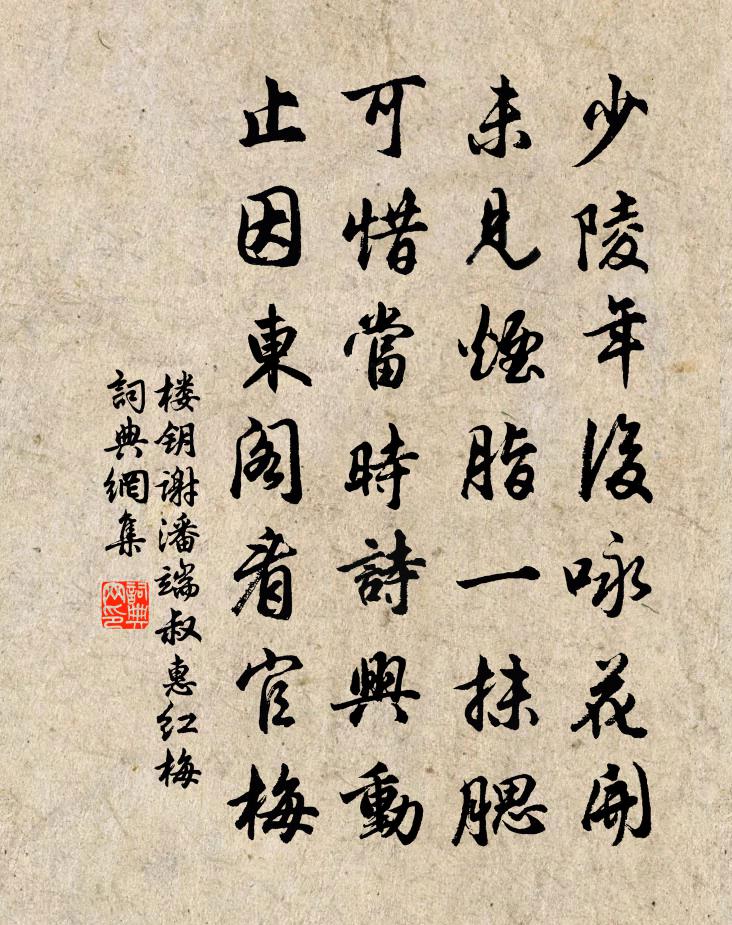 少陵年後咏花開
未見煙脂一抹腮
可惜當時詩興動
止因東阁看官梅
楼钥谢潘端叔惠红梅
詞典網集
詞典网印